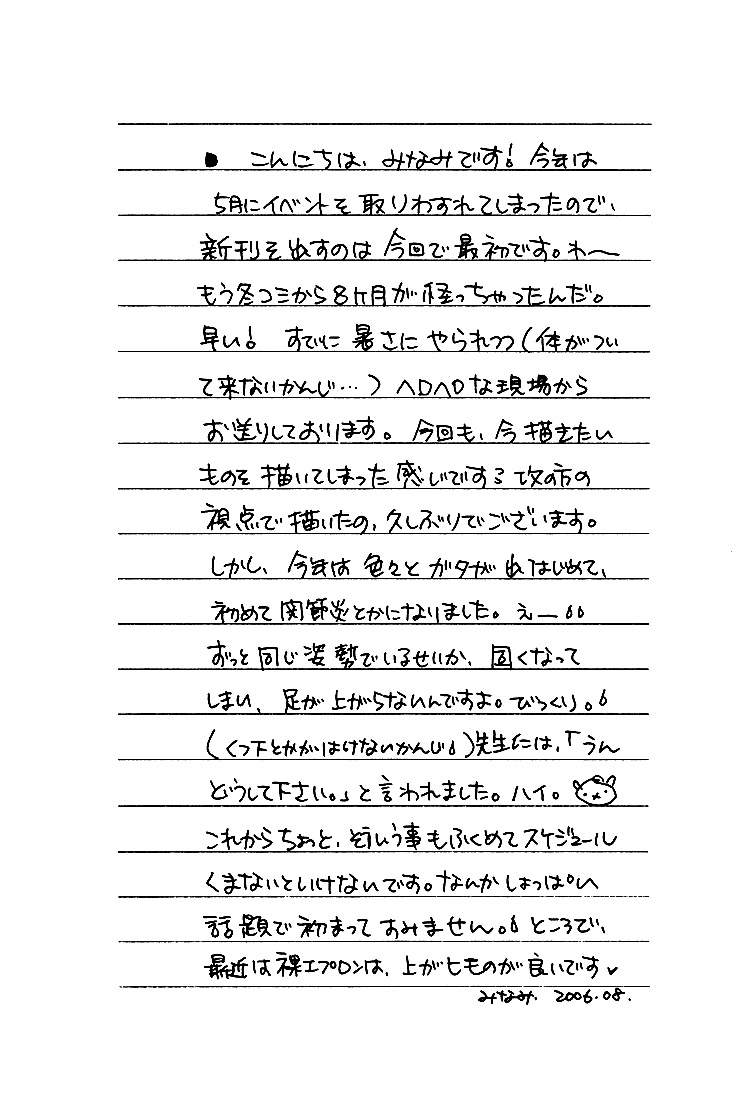 ● こんにちは、みなみです! 今年は
5月にイベントを取りわすれてしまったので、
新刊を出すのは今回で最初です。わ〜
もう冬コミから8ヶ月が経っちゃったんだ。
早い! すでに暑さにやられつつ(体がつい
て来ないかんじ…)ヘロヘロな現場から
お送りしております。今回も、今描きたい
ものを描いてしまった感じですね 攻の方の
視点で描いたの、久しぶりでございます。
しかし、今年は色々とガタが出はじめて、
初めて関節炎とかになりました。えー
ずっと同じ姿勢でいるせいか、固くなって
しまい、足が上がらないんですよ。びっくり。
(くつ下とかがはけないかんじ)先生には、「うん
どうして下さい。」と言われました。ハイ。
これからちょっと、そういう事もふくめてスケジュール
くまないといけないです。なんかしょっぱい
話題で初まってすみません。ところで、
最近は裸エプロンは、上が七ものが良いです
みなみ. 2006.08.